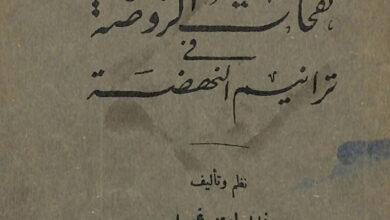 نفحات الروضة
في
ترانيم النهضة
نظم وتأليف